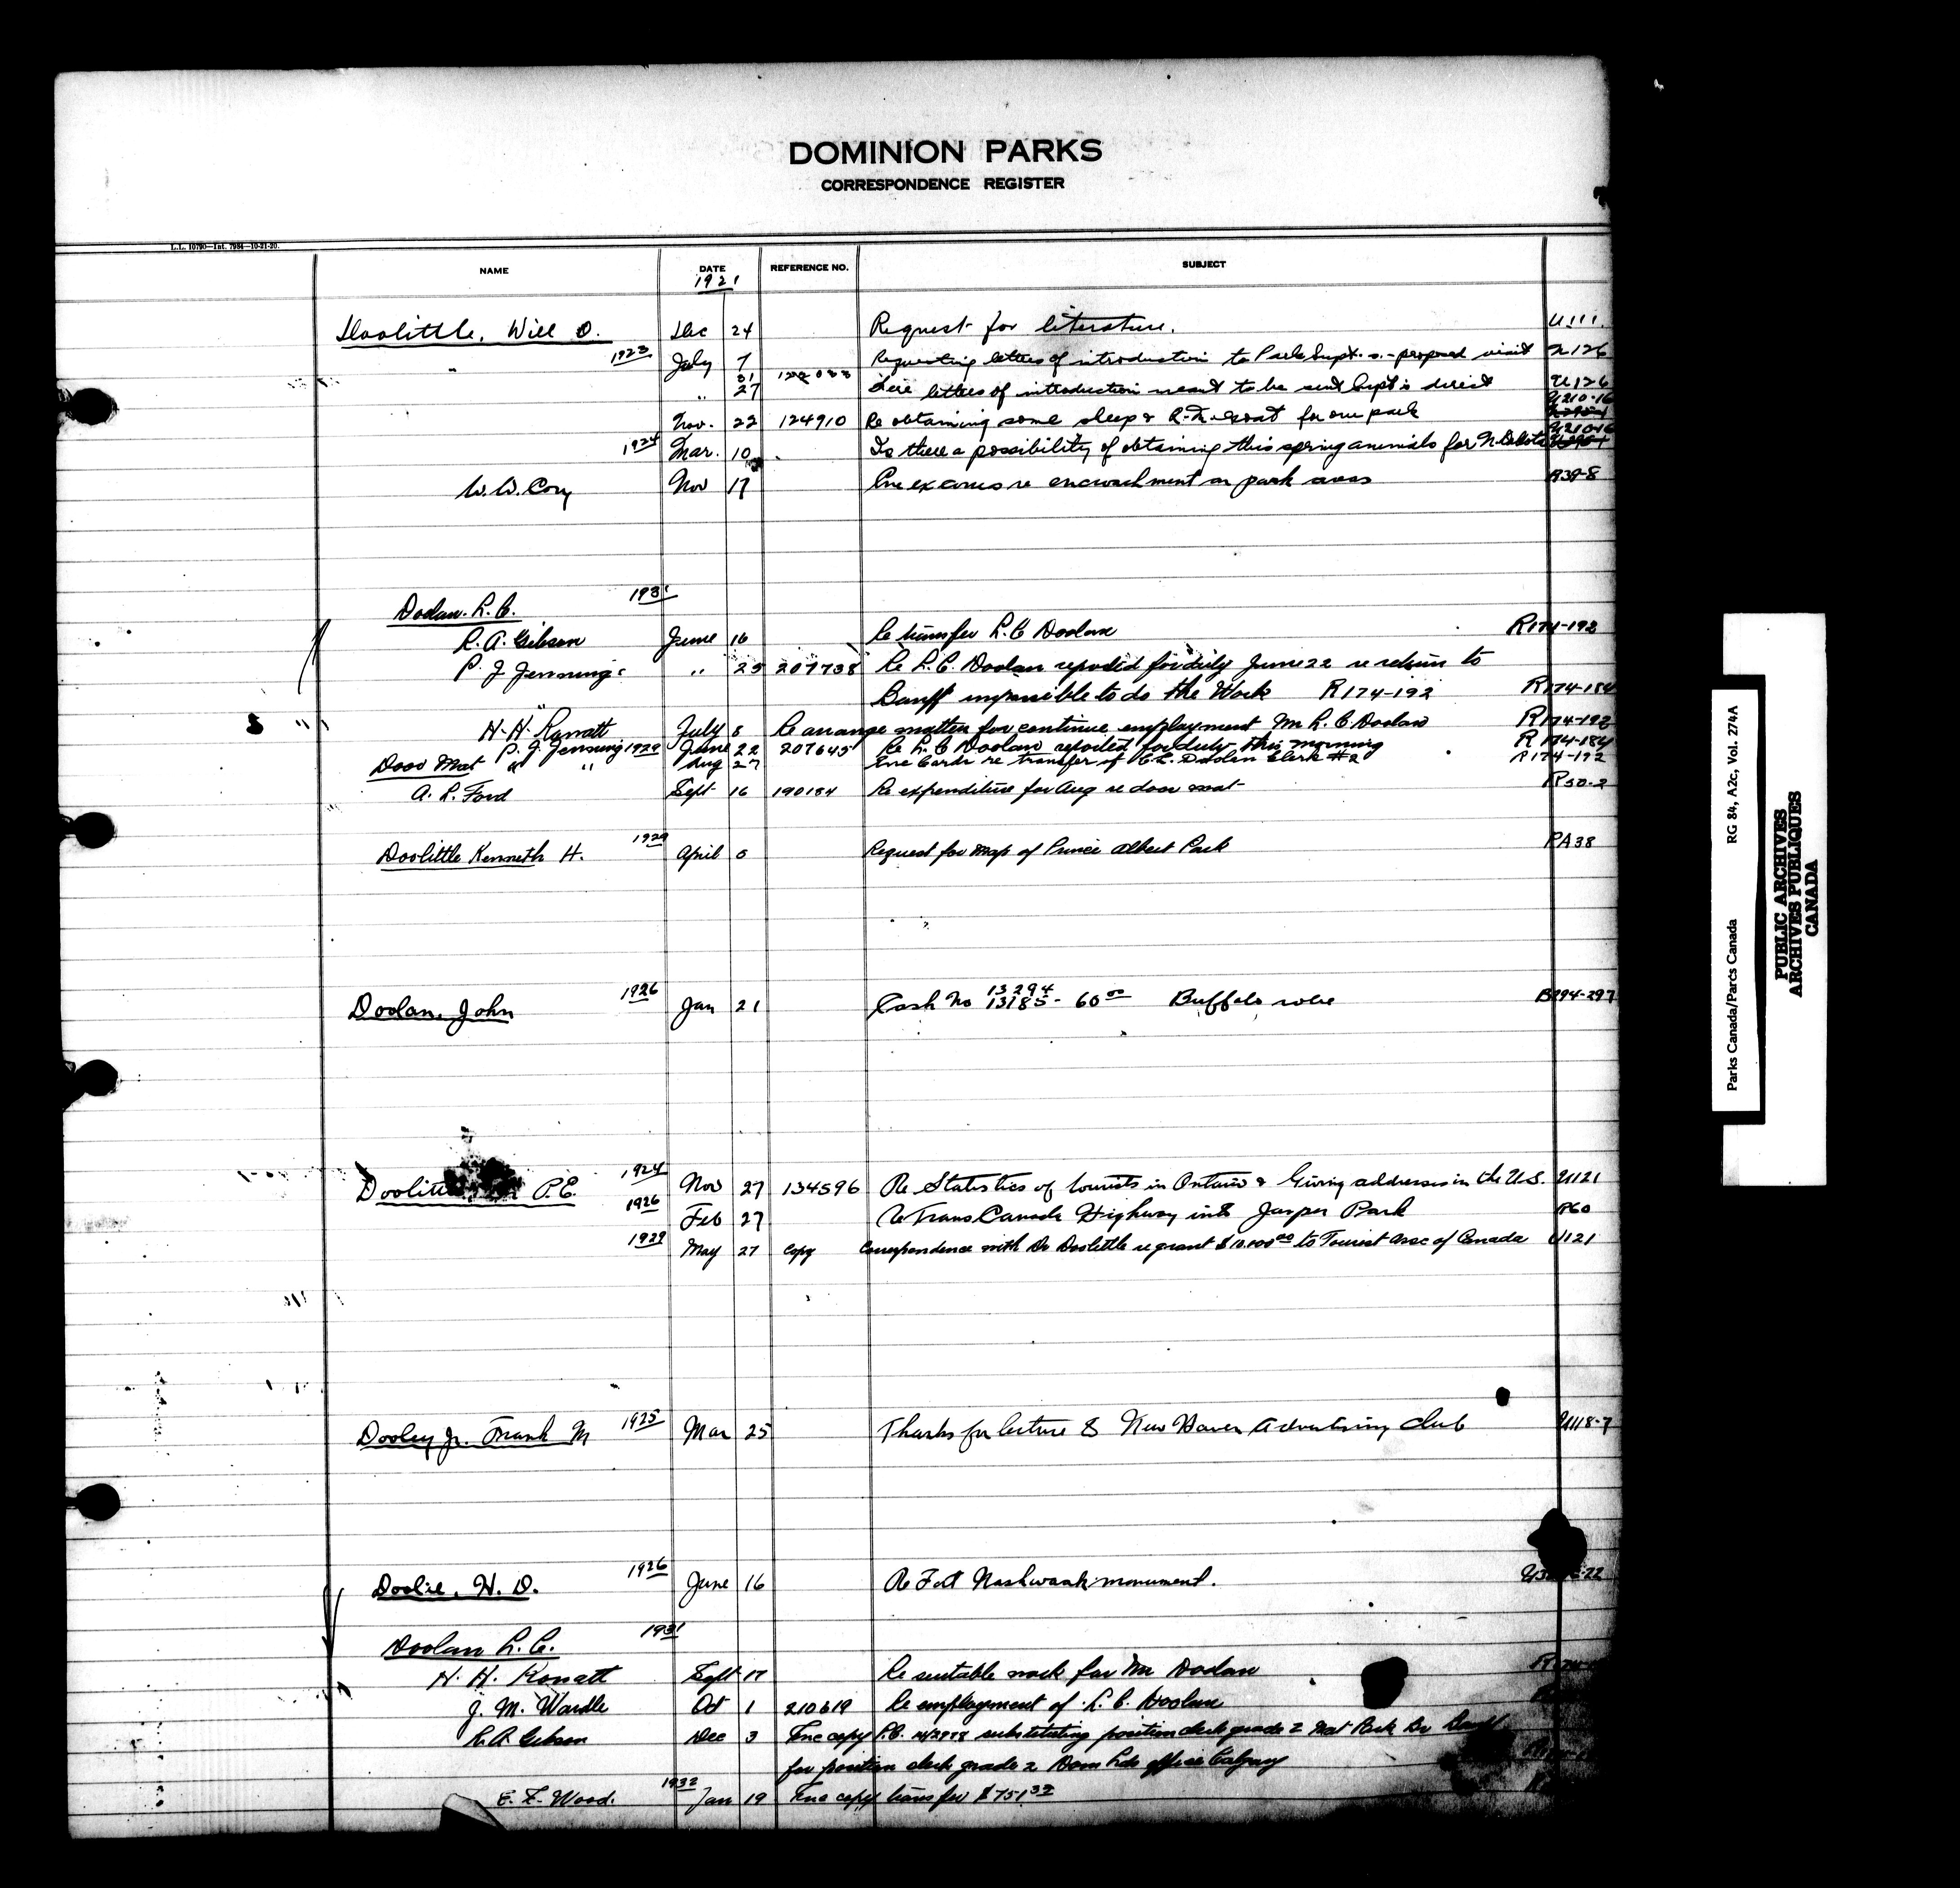 DOMINION PARKS
CORRESPONDENCE REGISTER
L.L. 10790—Int. 7984—10-21-20.
NAME DATE REFERENCE NO. SUBJECT
1921
Doolittle, Will O. Dec 24 Request for literature. U111.
" 1923 July 7 Requesting letters of introduction to Park Supt.s. - proposed visit U126
" 27 letters of introduction meant to be sent Supt's direct U126
U210-16
Nov. 22 124910 Re obtaining some sheep & R.M. goat for our park
U210-16
1924 Mar. 10 Is there a possibility of obtaining this spring animals for N. Dakota
W. W. Cory Nov 17 re encroachment on park areas R39-8
Doolan. L. C. 1931
R. A. Gibson June 16 Re transfer L. C Doolan R174-192
P. J Jennings " 25 207738 Re L. C. Doolan reported for duty June 22 re return to
Banff impossible to do the Work R174-192 R174-184
H. H. Rowatt July 8 Re arrange matter for continue employment Mr L. C. Doolan R174-192
P. J. Jennings 1929 June 22 207645 Re L. C Doolan reported for duty this morning R174-184
Door Mat " " Aug 27 re transfer of C. L. Doolan Clerk #2 R174-192
A. L. Ford Sept 16 190184 Re expenditure for Aug re door mat R50-2
Doolittle Kenneth H. 1929 April 8 Request for Map of Prince Albert Park PA38
13294
Doolan, John 1926 Jan 21 Cash No 13185 - 60 00 Buffalo robe B294-297
Doolittle P.E. 1924 Nov 27 134596 Re Statistics of tourists in Ontario & Giving addresses in the U.S. U121
1926 Feb 27 Re Trans Canada Highway into Jasper Park
1929 May 27 copy Correspondence with Dr Doolittle re grant $10.000 00 to Tourist Assc of Canada U121
Dooley Jr. Frank M 1925 Mar 25 Thanks for lecture to New Haven Advertising Club U118-7
Doolie, H. D. 1926 June 16 Re Fort Nashwaak monument.
Doolan L. C. 1931
H. H. Rowatt Sept 17 Re suitable work for Mr Doolan
J. M. Wardle Oct 1 210619 Re employment of L. C. Doolan
R. A. Gibson Dec 3 Enc copy P.C. substituting position clerk grade 2 Nat Park Br Banff
for position clerk grade 2 Dom Lds office Calgary
E. F. Wood. 1932 Jan 19 Enc copy transfer $751 32
Parks Canada/Parcs Canada RG 84, A2c, Vol. 274A
PUBLIC ARCHIVES
ARCHIVES PUBLIQUES
CANADA